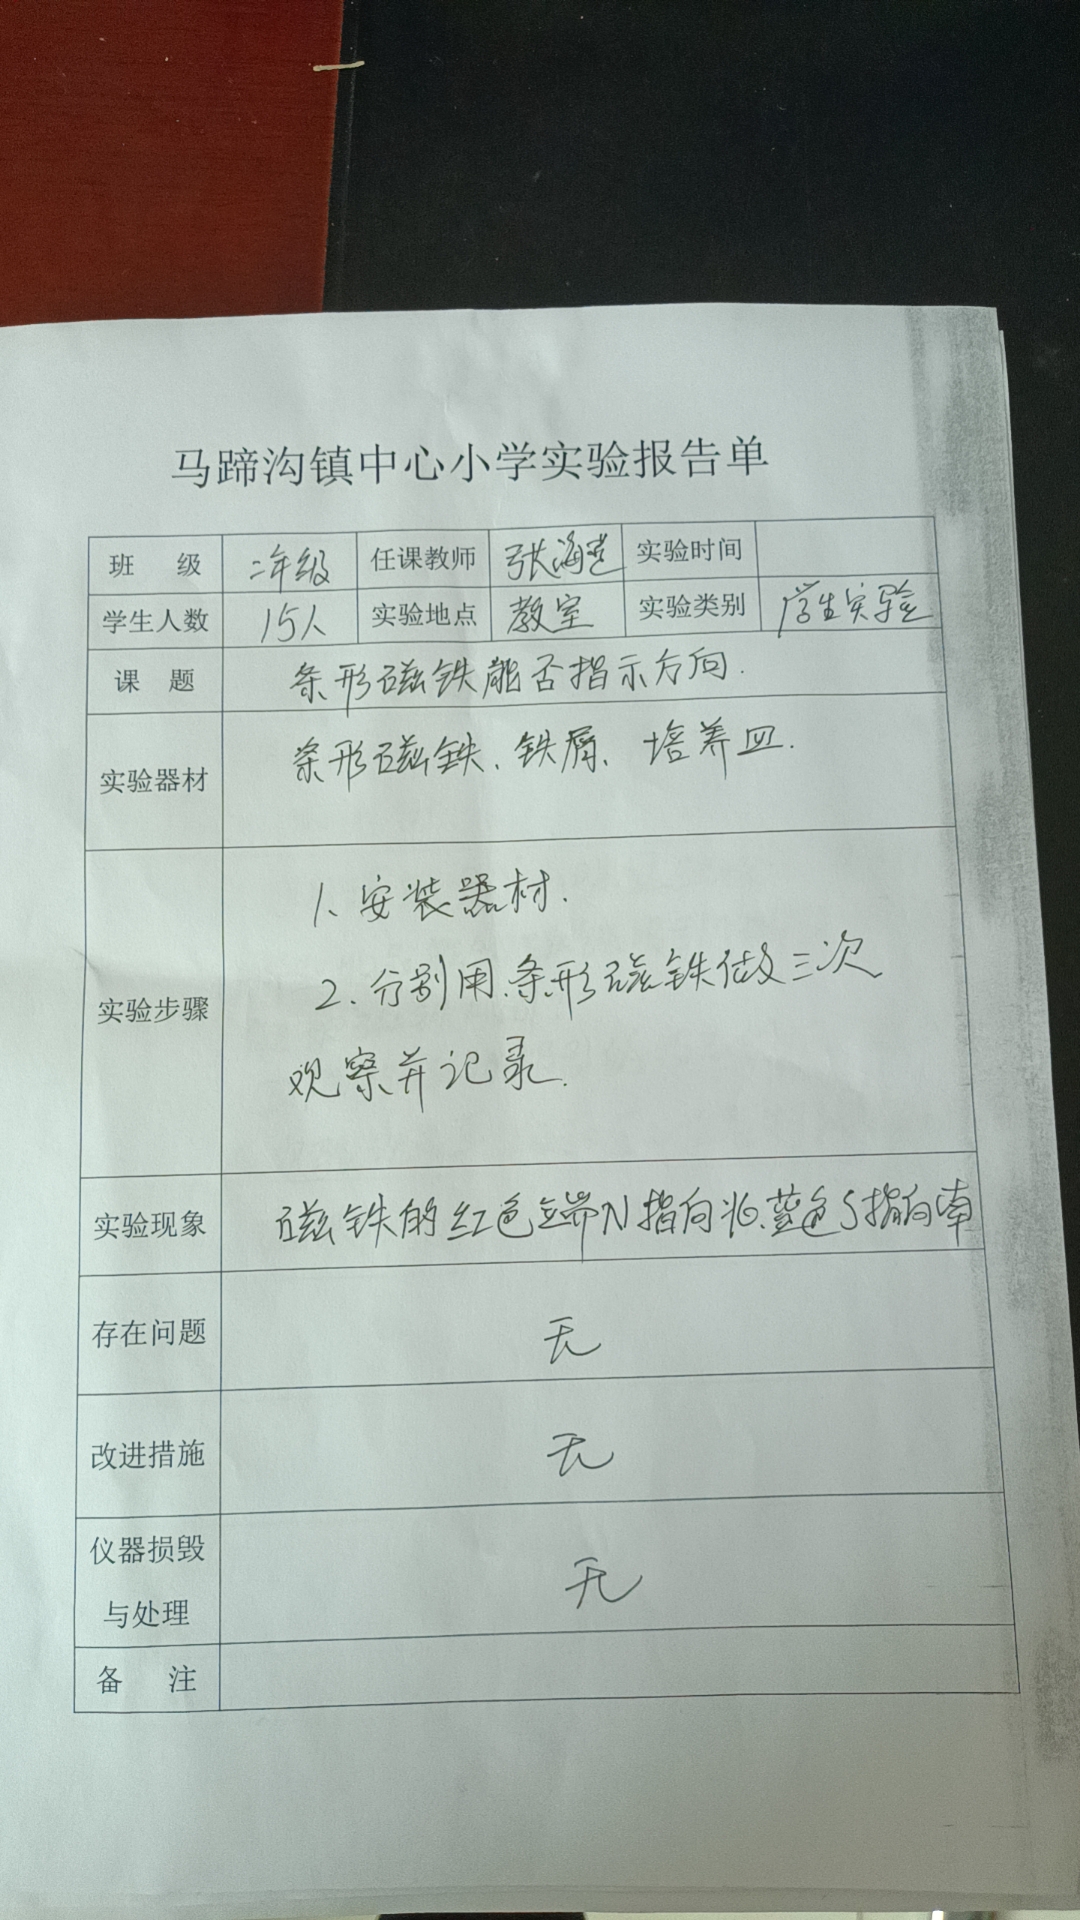 马蹄沟镇中心小学实验报告单
班 级 二年级 任课教师 张海 实验时间
学生人数 15人 实验地点 教室 实验类别 学生实验
课 题 条形磁铁能否指示方向.
实验器材 条形磁铁、铁屑、培养皿.
1、安装器材.
实验步骤 2、分别用条形磁铁做三次
观察并记录.
实验现象 磁铁的红色端N指向北、蓝色S指向南
存在问题 无
改进措施 无
仪器损毁
与处理 无
备 注